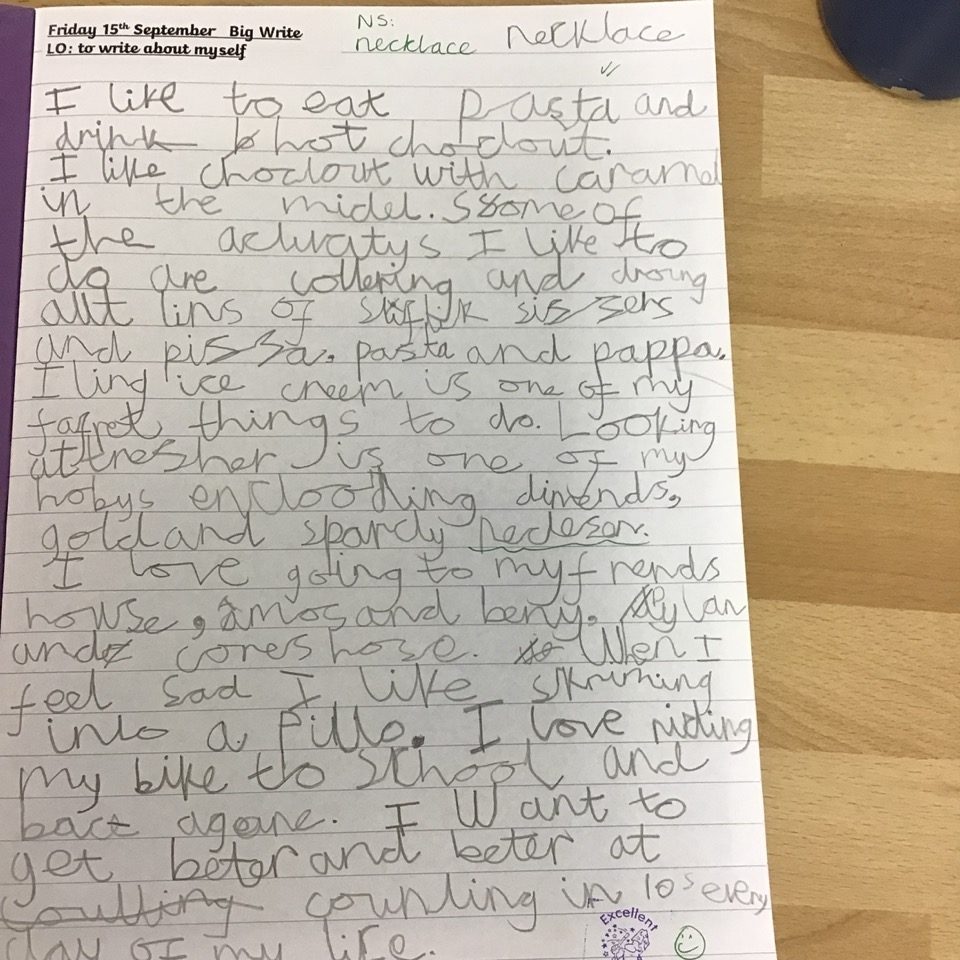 Friday 15th September Big Write
LO: to write about myself
NS:
necklace necklace
I like to eat pasta and
drink hot choclout.
I like choclout with caramel
in the midel. Ssome of
the activatys I like to
do are collering and droing
allt lins of sissers
and pissa. pasta and pappa.
I ling ice creem is one of my
fafret things to do. Looking
at tresher is one of my
hobys encloodling dimends,
gold and sparcly necleser.
I love going to my frends
howse, amos and beny. Dylan
and cores hose. When I
feel sad I like skruming
into a pillo. I love riding
my bike to school and
back agane. I Want to
get beter and beter at
counting in 10s every
day of my life.
Excellent